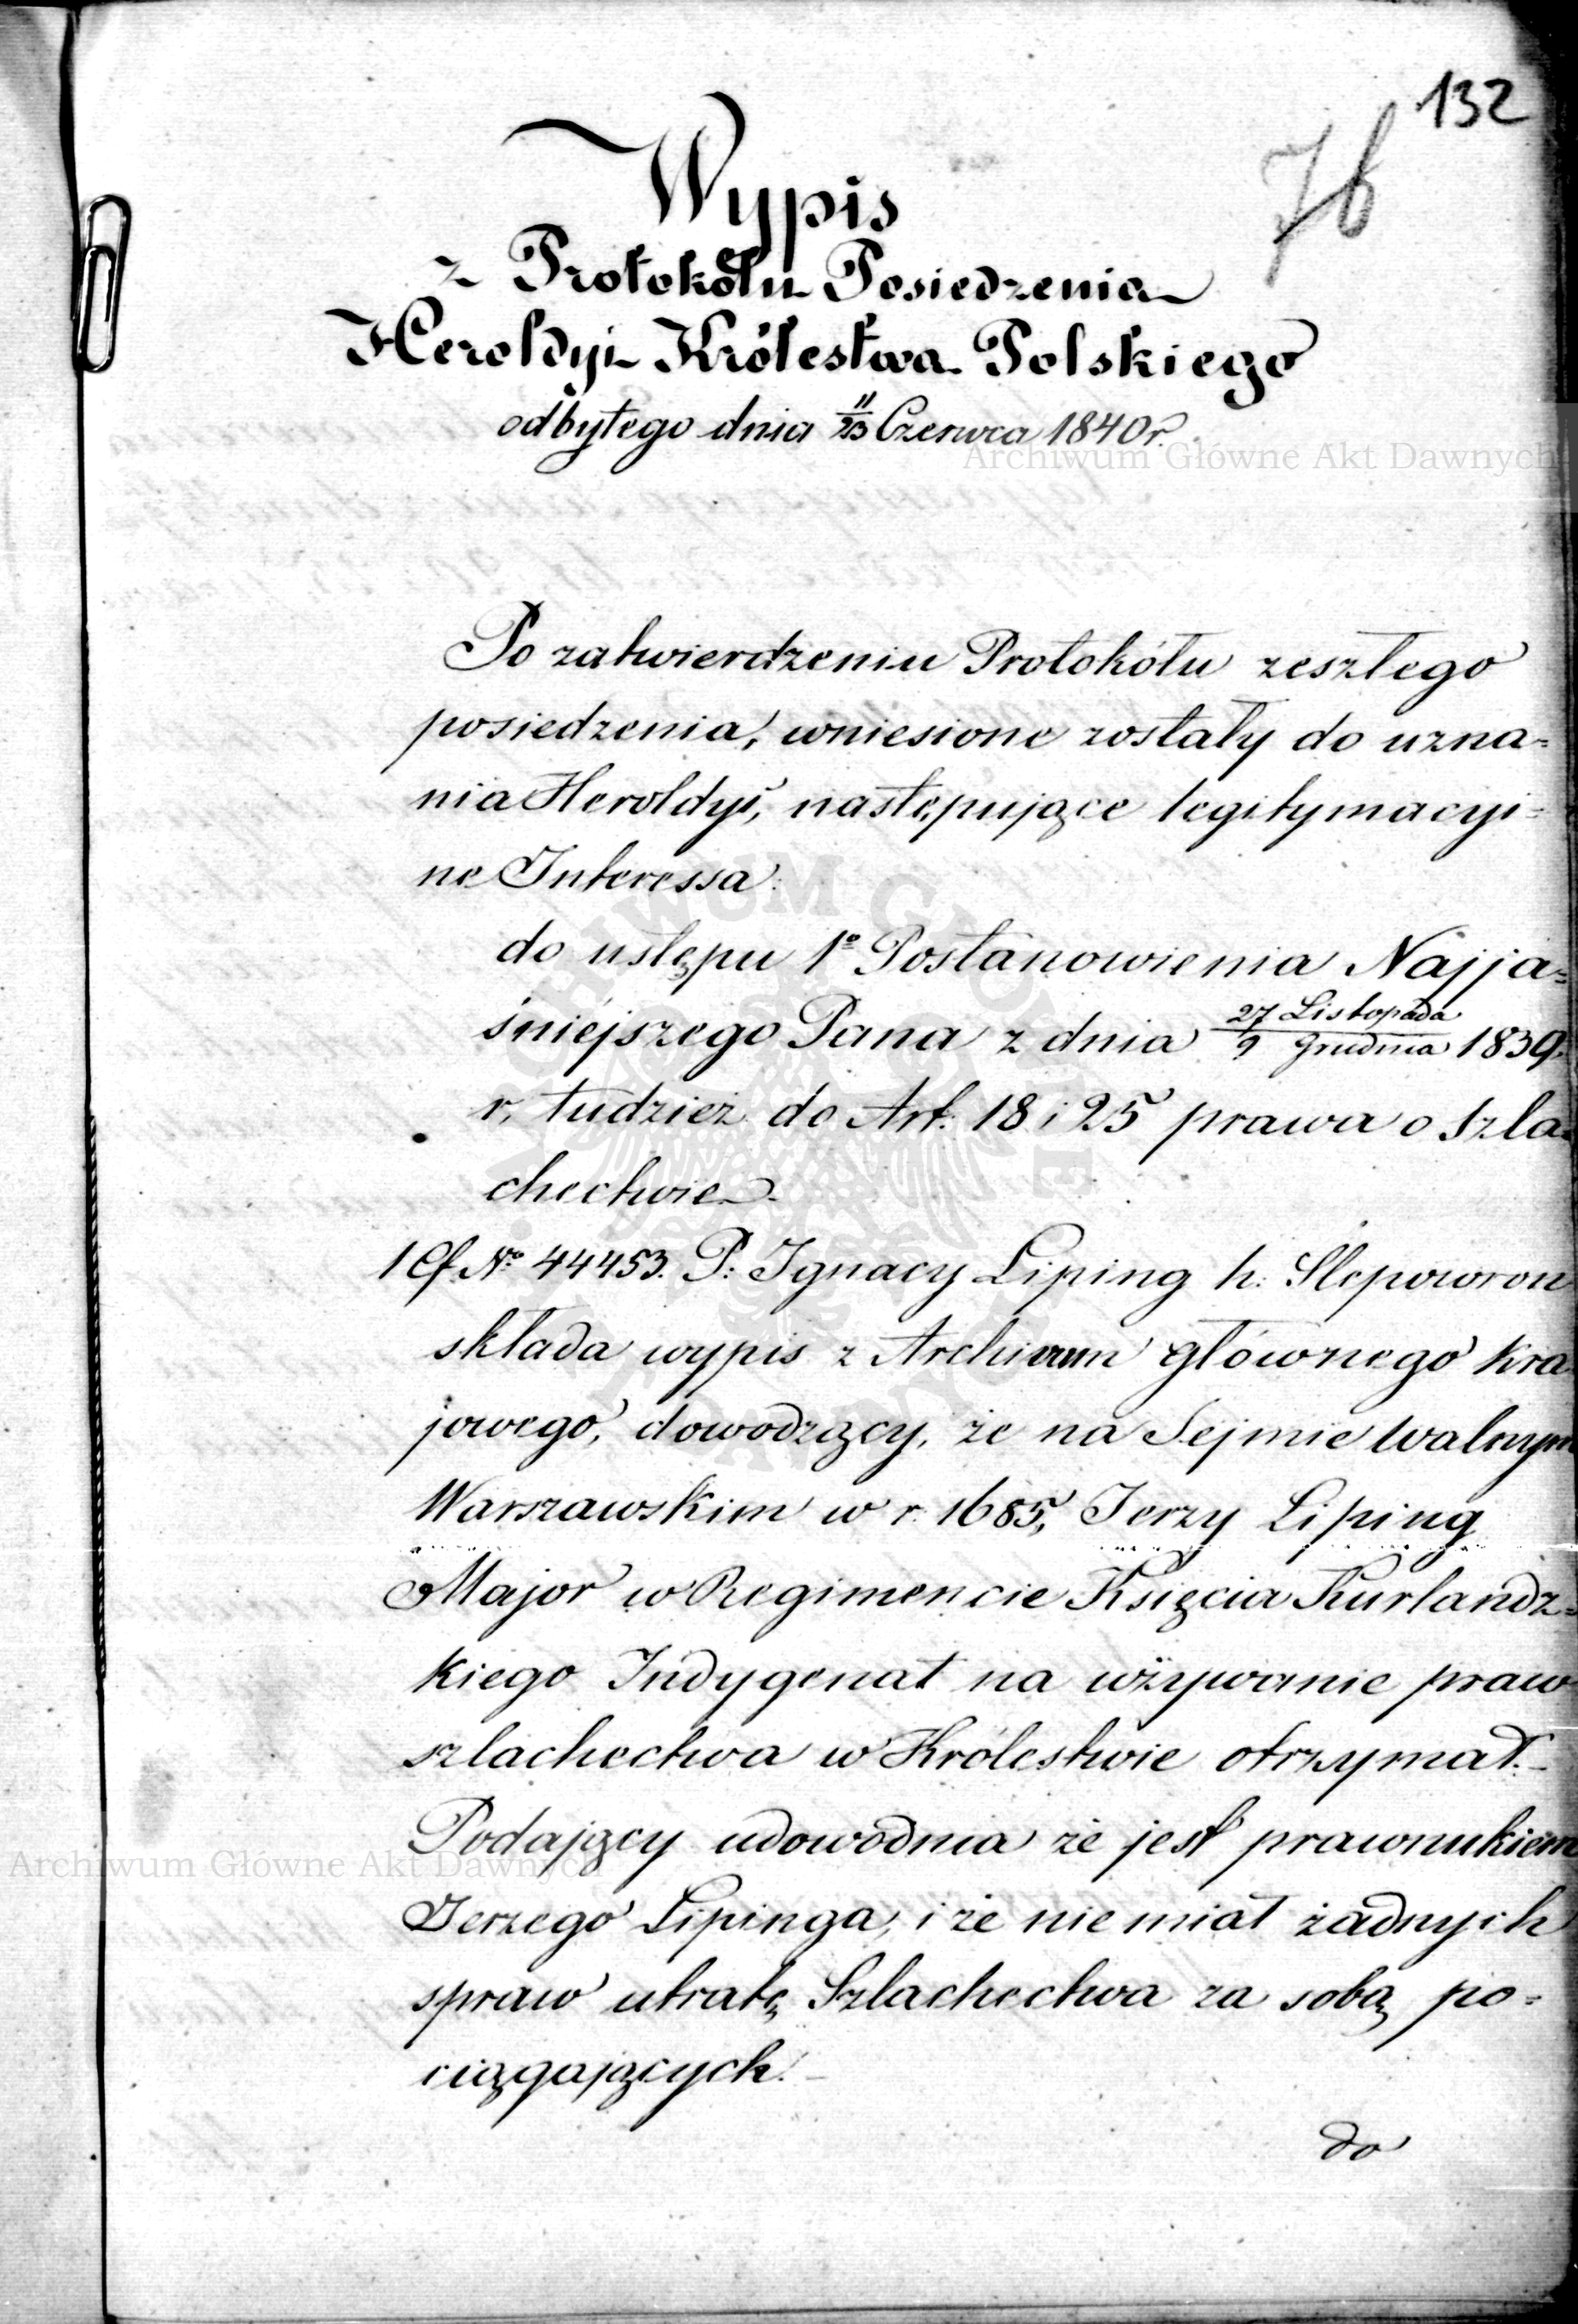 132
76
Wypis
z Protokółu Posiedzenia
Heroldyi Królestwa Polskiego
odbytego dnia 11/23 Czerwca 1840 r.
Archiwum Główne Akt Dawnych
Po zatwierdzeniu Protokółu zeszłego
posiedzenia, wniesione zostały do uzna=
nia Heroldyi, następujące legitymacyi=
ne Interessa:
do ustępu 1º Postanowienia Najja=
śniejszego Pana z dnia 27 Listopada/9 Grudnia 1839.
r, tudzież do Art. 18 i 25 prawa o szla=
chectwie.
1 Nº 44453. P: Ignacy Liping h. Slepowron
składa wypis z Archiwum głównego Kra
jowego, dowodzący, że na Sejmie walnym
Warszawskim w r. 1685, Jerzy Liping
Major w Regimencie Księcia Kurlandz=
kiego Indygenat na używanie praw
szlachectwa w Królestwie otrzymał.-
Podający udowodnia że jest prawnukiem
Archiwum Główne Akt Dawnych
Jerzego Lipinga, i że nie miał żadnych
spraw utratę Szlachectwa za sobą po=
ciągających.-
do